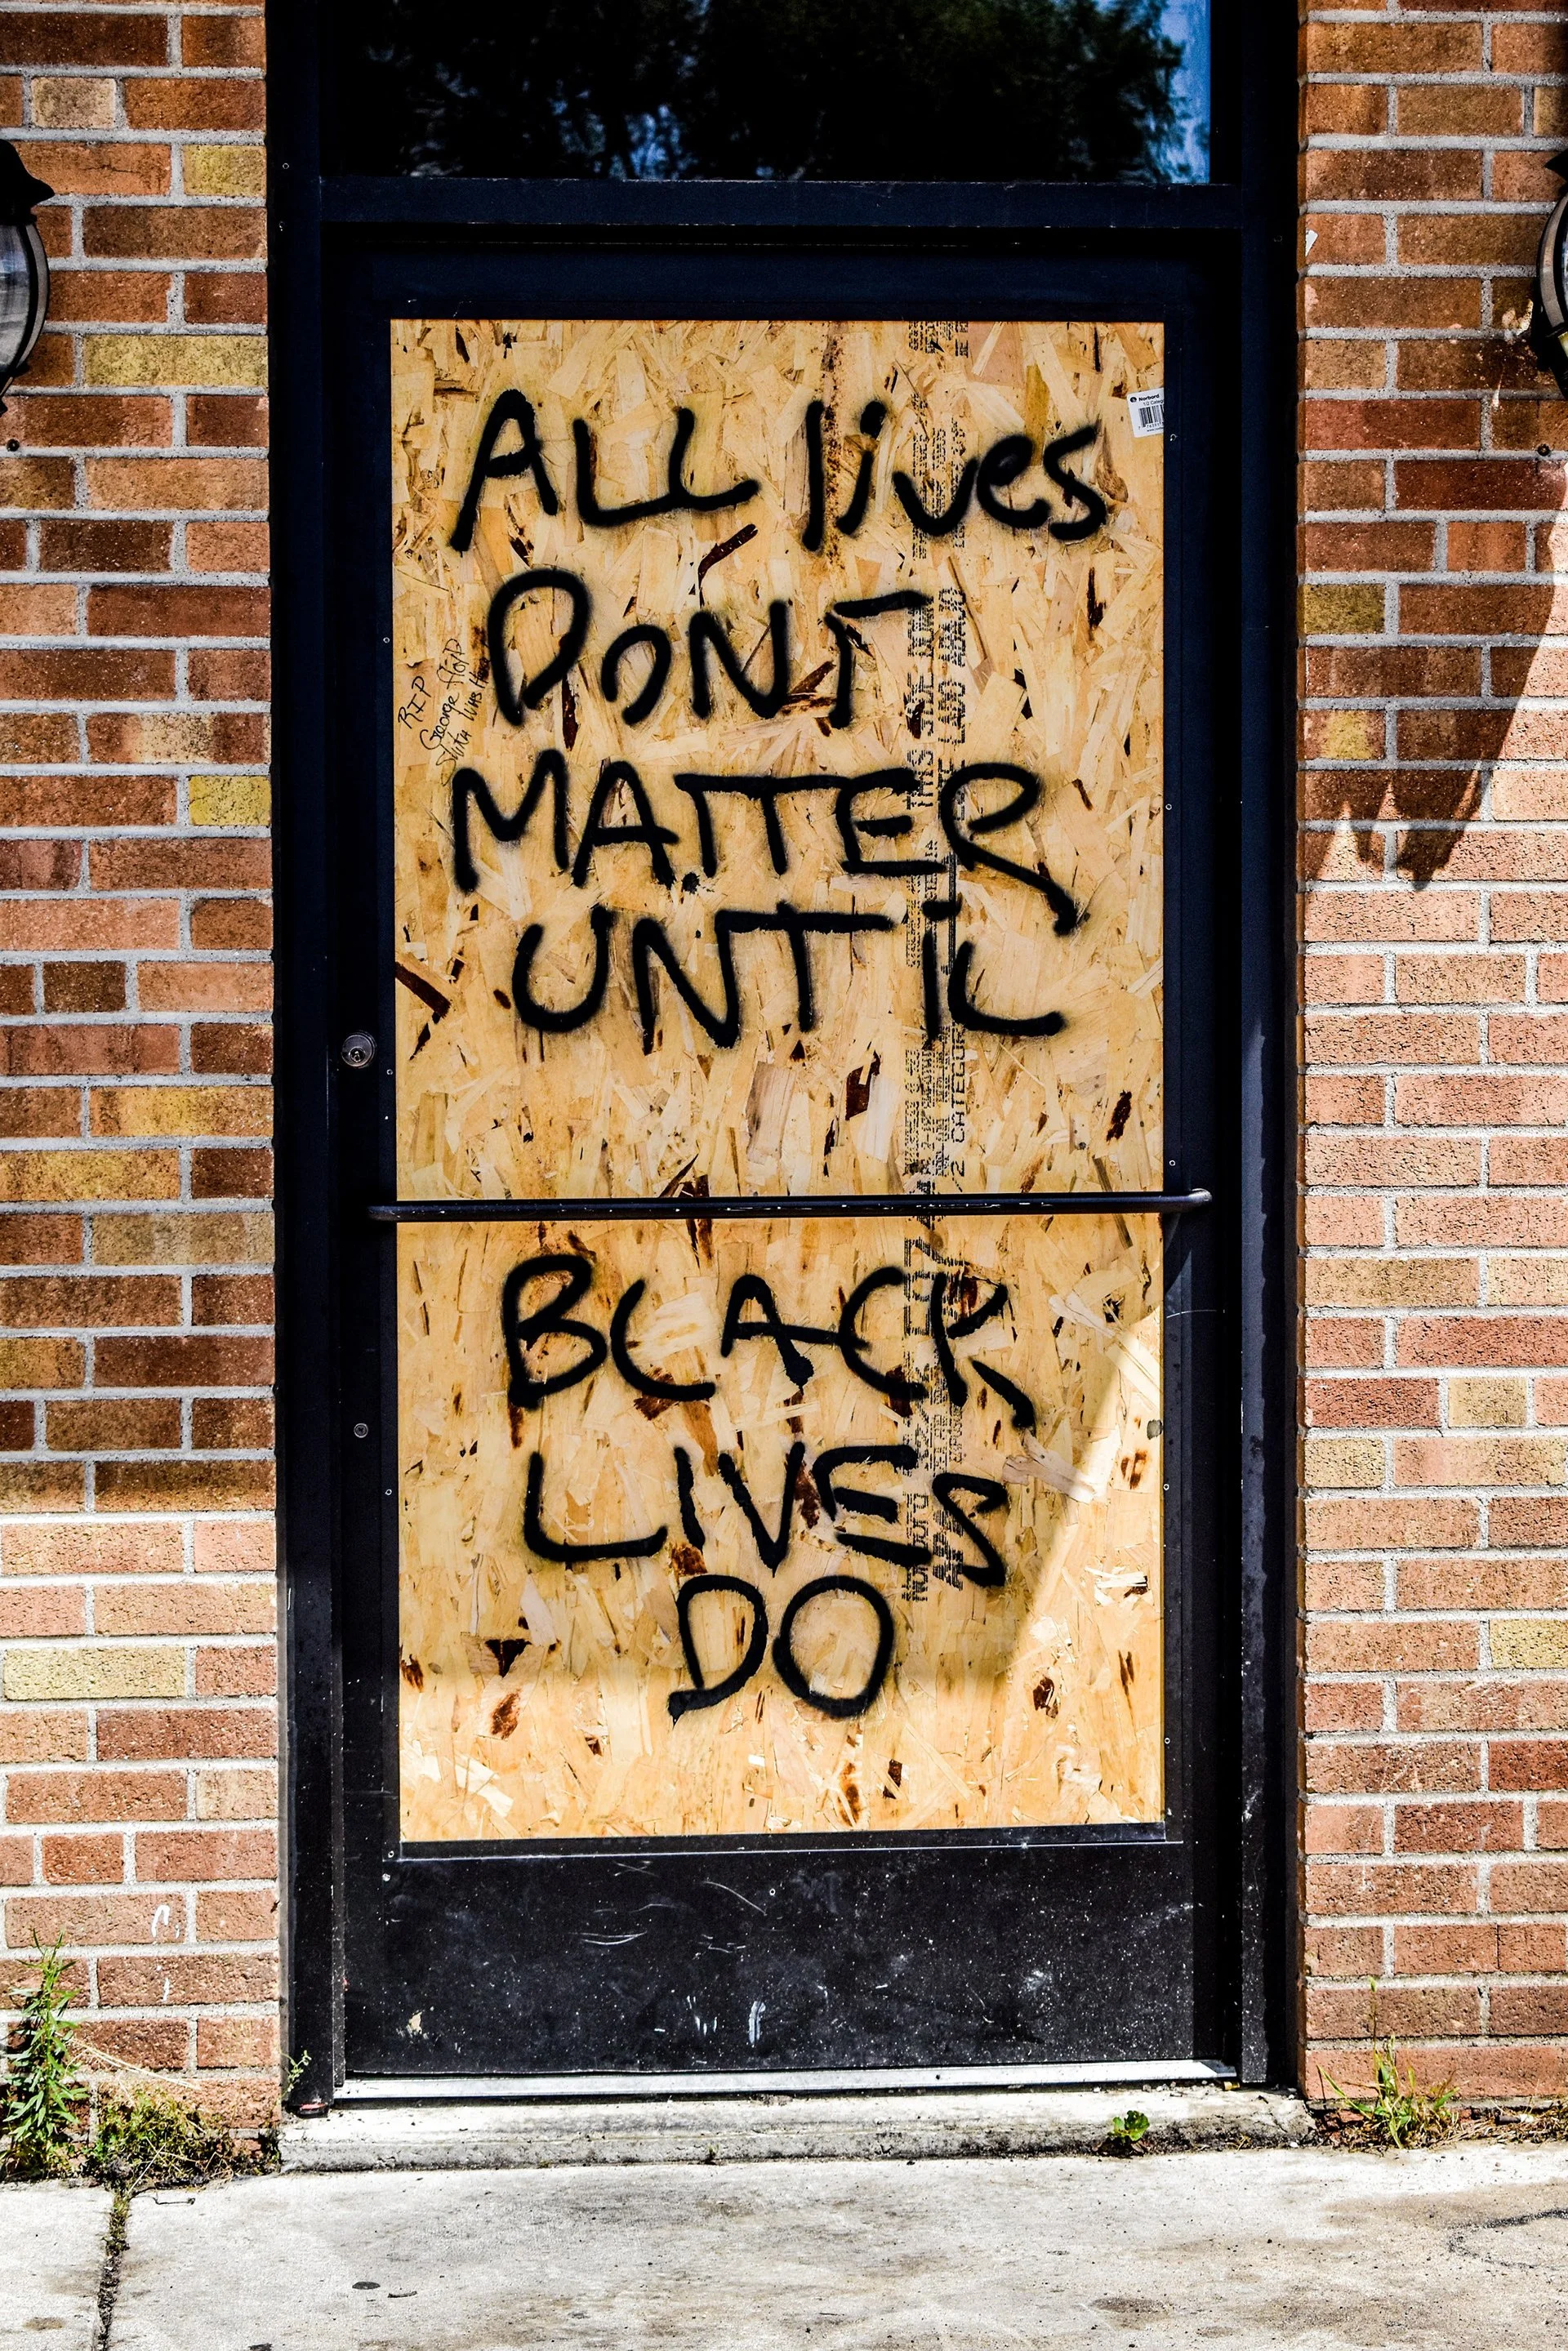 ALL lives
DON'T
MATTER
UNTiL
BLACK
LIVES
DO
RIP
George Floyd
Norbord
THIS SIDE DOWN